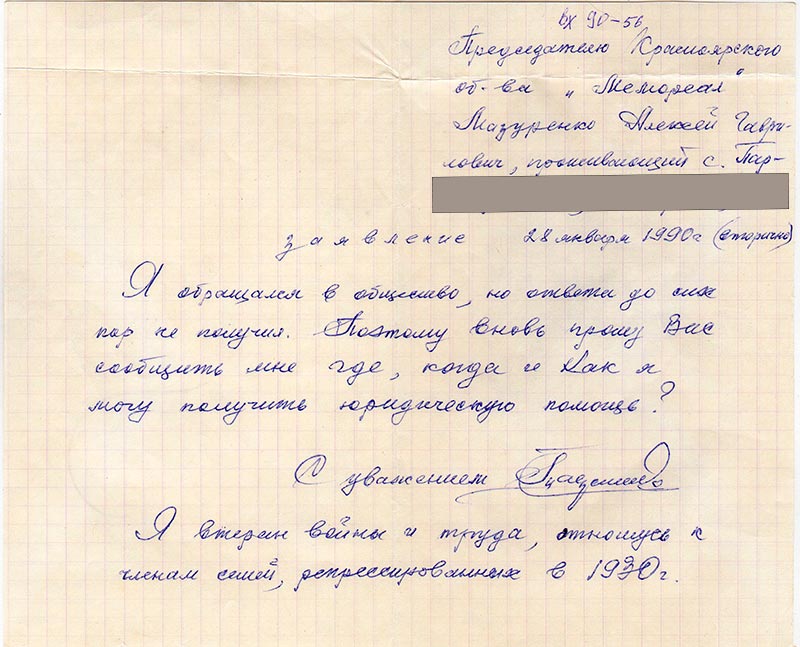 вх 90-56
Председателю Красноярского
об-ва „Мемореал"
Мазуренко Алексей Гаври-
лович, проживающий с. Пар-
заявление 28 января 1990г (вторично)
Я обращался в общество, но ответа до сих
пор не получил. Поэтому вновь прошу Вас
сообщить мне где, когда и как я
могу получить юридическую помощь?
С уважением
Я втеран войны и труда, отношусь к
членам семей, репрессированных в 1930г.